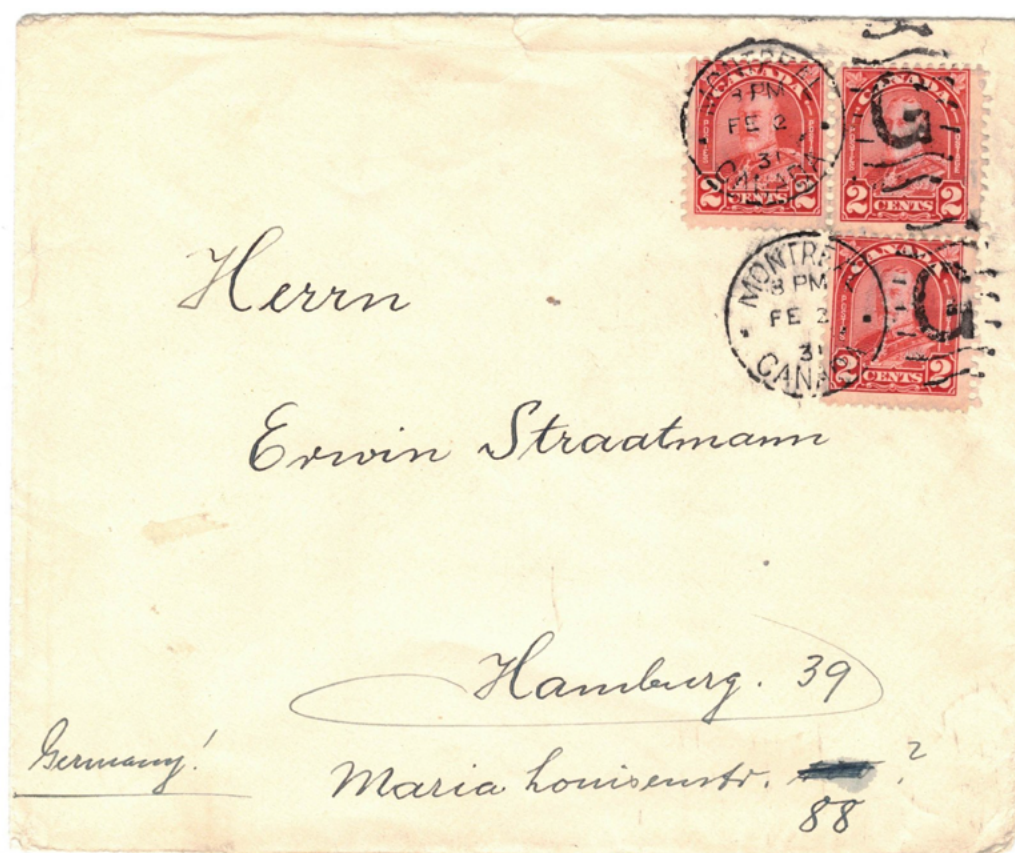 MONTREAL
8 PM
FE 2
31
CANADA
CANADA
2 CENTS 2
CANADA
POSTES POSTAGE
2 CENTS 2
G
MONTREAL
8 PM
FE 2
31
CANADA
CANADA
2 CENTS 2
G
Herrn
Erwin Straatmann
Hamburg. 39
Germany!
Maria Louisenstr. ?
88